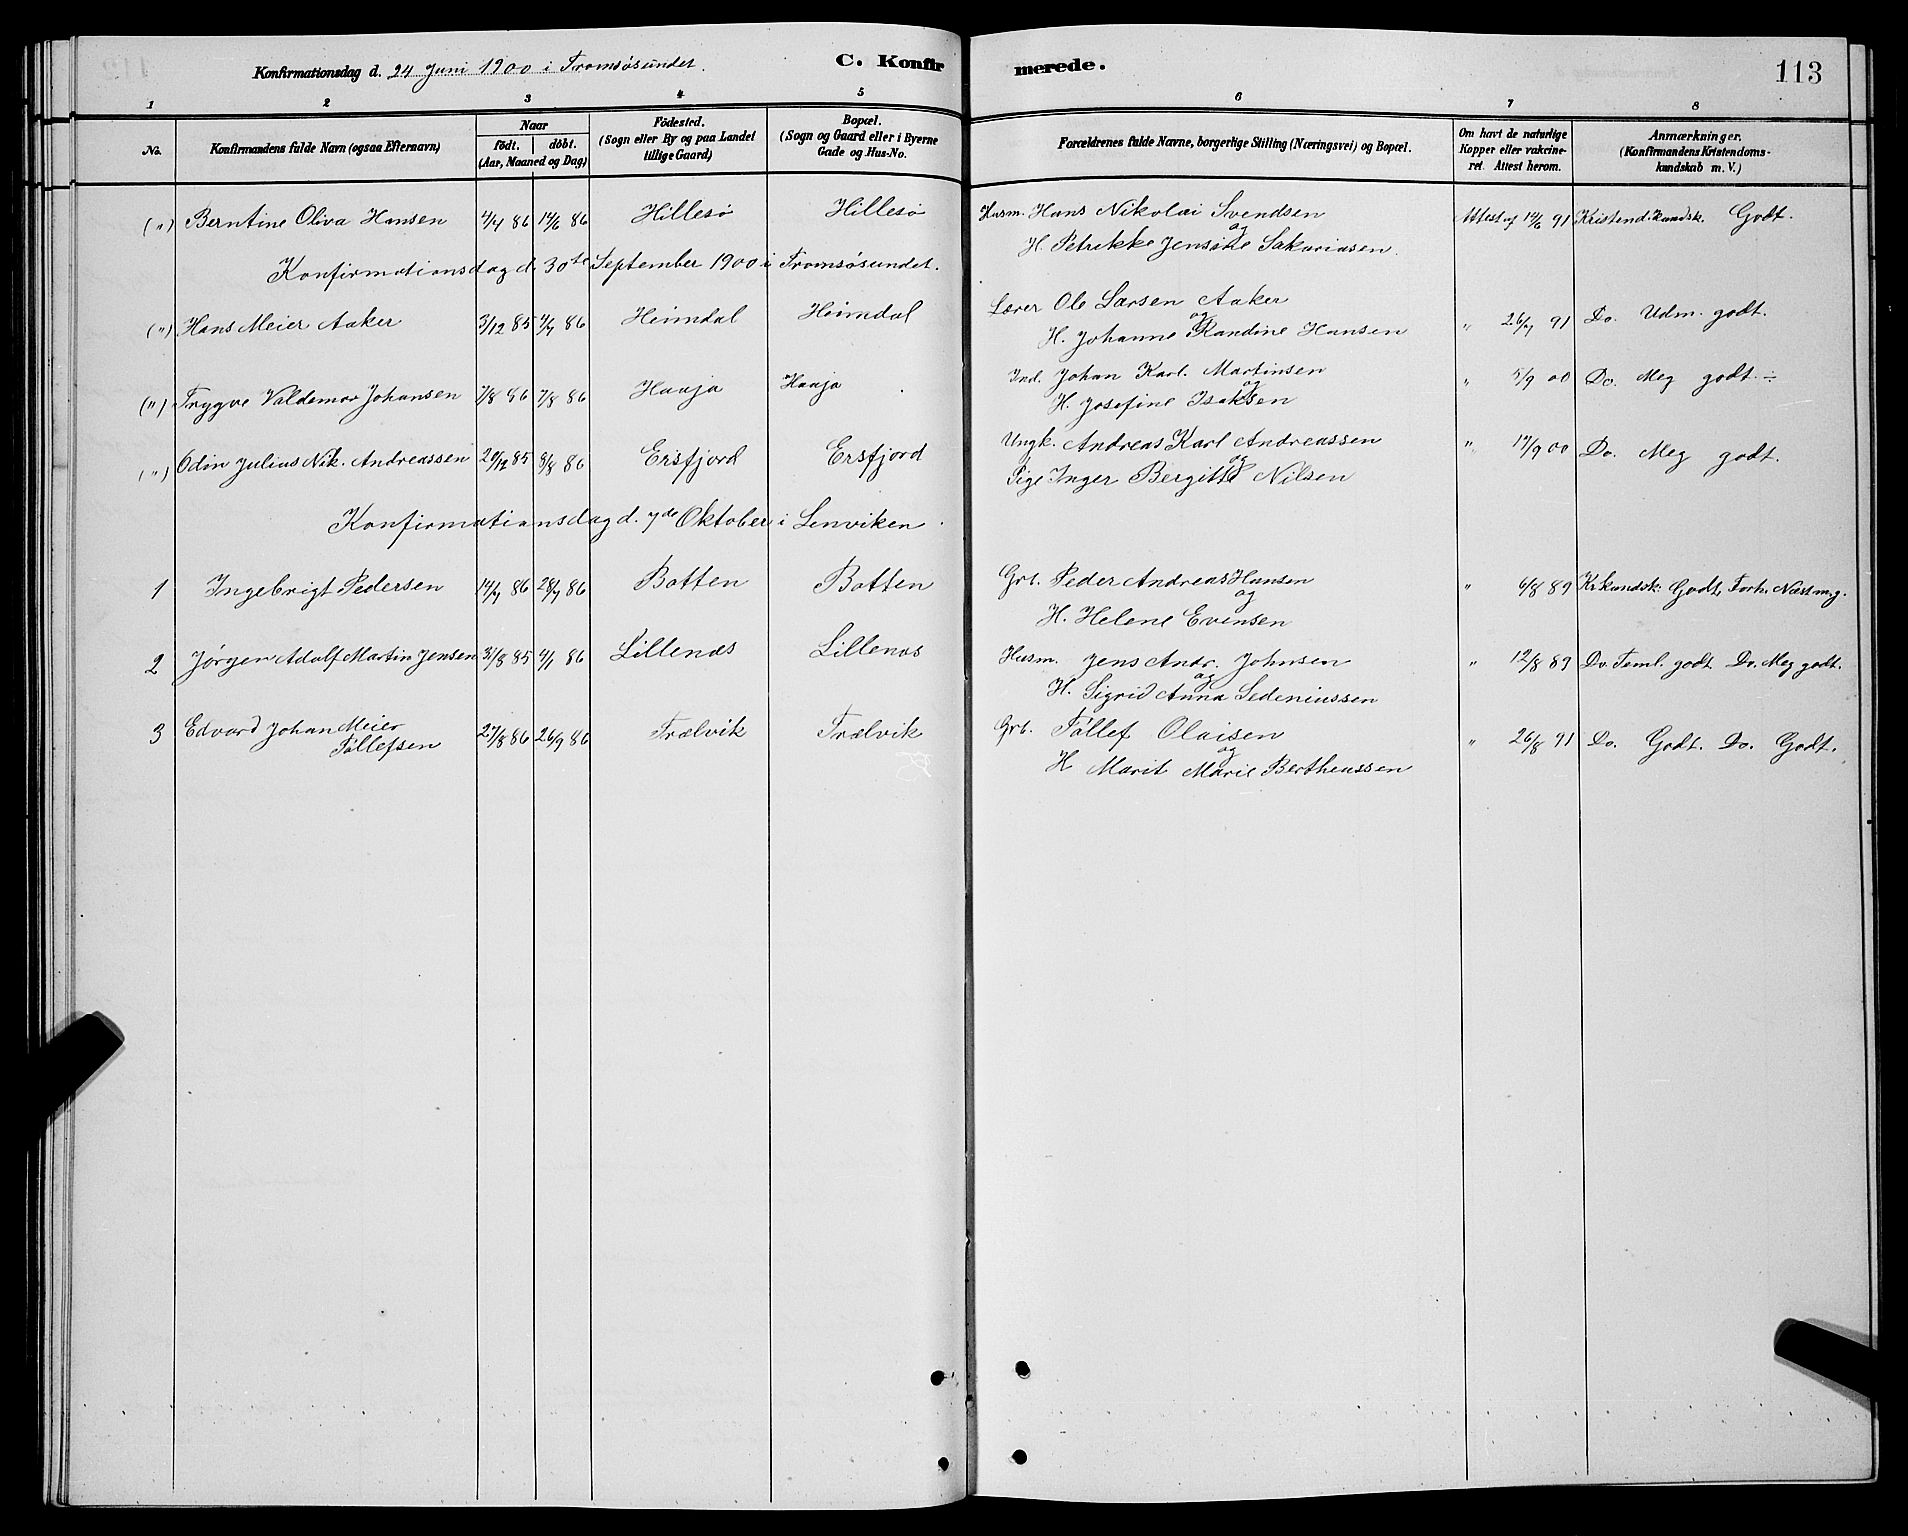 Konfirmationsdag d. 24 Juni 1900 i Tromsøsundet. C. Konfirmerede. 113
1 2 3 4 5 6 7 8
No. Konfirmandens fulde Navn (ogsaa Efternavn) Naar Födt. döbt. (Aar, Maaned og Dag) Födested. (Sogn eller By og paa Landet tillige Gaard) Bopæl. (Sogn og Gaard eller i Byerne Gade og Hus-No. Forældrenes fulde Navne, borgerlige Stilling (Næringsvei) og Bopæl. Om havt de naturlige Kopper eller vakcineret. Attest herom. Anmærkninger. (Konfirmandens Kristendomskundskab m. V.)
(") Berntine Oliva Hansen 4/4 86 14/6 86 Hillesø Hillesø Husm. Hans Nikolai Svendsen Attest af 14/6 91 Kristend. kundsk. Godt.
og
H. Petrikke Jensine Sakariasen.
Konfirmationsdag d. 30te September 1900 i Tromsøsundet.
(") Hans Meier Aaker 3/12 85 4/7 86 Heimdal Heimdal Lærer Ole Larsen Aaker " 26/7 91 Do. Udm. godt.
og
H. Johanne Randine Hansen
(") Trygve Valdemar Johansen 7/8 86 7/8 86 Haaja Haaja Ind. Johan Karl. Martinsen " 5/9 00 Do. Meg godt ÷
og
H. Josefine Isaksen
(") Odin Julius Nik. Andreassen 29/12 85 8/8 86 Ersfjord Ersfjord Ungk. Andreas Karl Andreassen " 17/9 00 Do. Meg godt.
og
Pige Inger Bergitte Nilsen
Konfirmationsdag d. 7de Oktober i Lenviken.
1 Ingebrigt Pedersen 14/7 86 28/7 86 Botten Botten Grb. Peder Andreas Hansen " 6/8 89 Kr. kundsk: Godt, Forh. Næst m. g.
og
H. Helene Evensen
2 Jørgen Adolf Martin Jensen 31/8 85 4/1 86 Lillenæs Lillenæs Husm. Jens Andr. Johnsen " 12/8 89 Do. Teml. godt Do. Meg godt.
og
H. Sigrid Anna Sedeniussen
3 Edvard Johan Meier Tollefsen 27/8 86 26/9 86 Trælvik Trælvik Grb. Tollef Olaisen " 26/8 91 Do. Godt. Do. Godt.
og
H Marit Marie Bertheussen